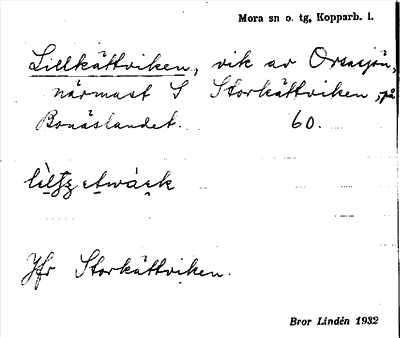 Mora sn o. tg, Kopparb. l.
Lillkättviken, vik av Orsasjön,
närmast S Storkättviken, på
Bonäslandet. 60.
Jfr Storkättviken.
Bror Lindén 1932